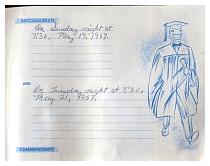 BACCALAUREATE
On Sunday night at
7:30, May 19, 1957.
AND
On Tuesday night at 7:30,
May 21, 1957.
COMMENCEMENT